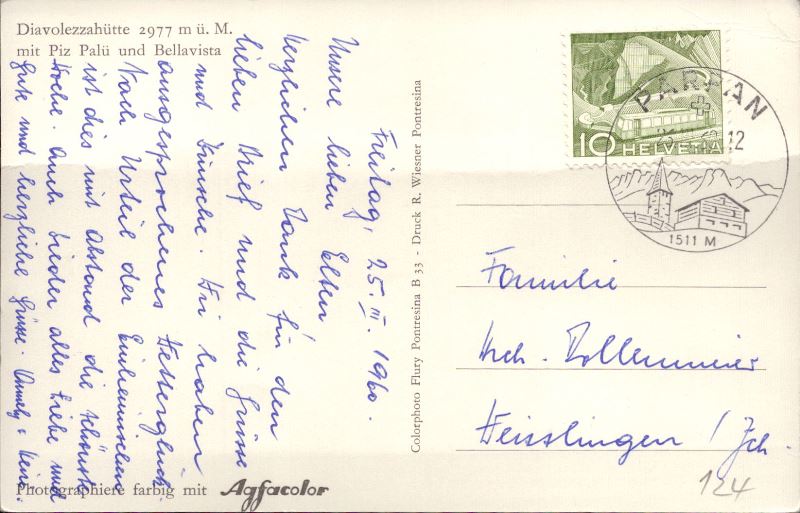 Diavolezzahütte 2977 m ü. M.
mit Piz Palü und Bellavista
Freitag, 25. III. 1960.
Unsere lieben Eltern
Herzlichen Dank für den
lieben Brief und die Grüsse
und Wünsche. Wir haben
ausgesprochenes Wetterglück.
Nach Urteil der Einheimischen
ist dies mit Abstand die schönste
Woche. Auch wieder alles Liebe und
Gute und herzliche Grüsse.
Photographiere farbig mit Agfacolor
Colorphoto Flury Pontresina B 33 - Druck R. Wiesner Pontresina
10 HELVETIA
PARPAN
12
1511 M
Familie
Hch. Bollenmeier
Weisslingen / Zch.
124